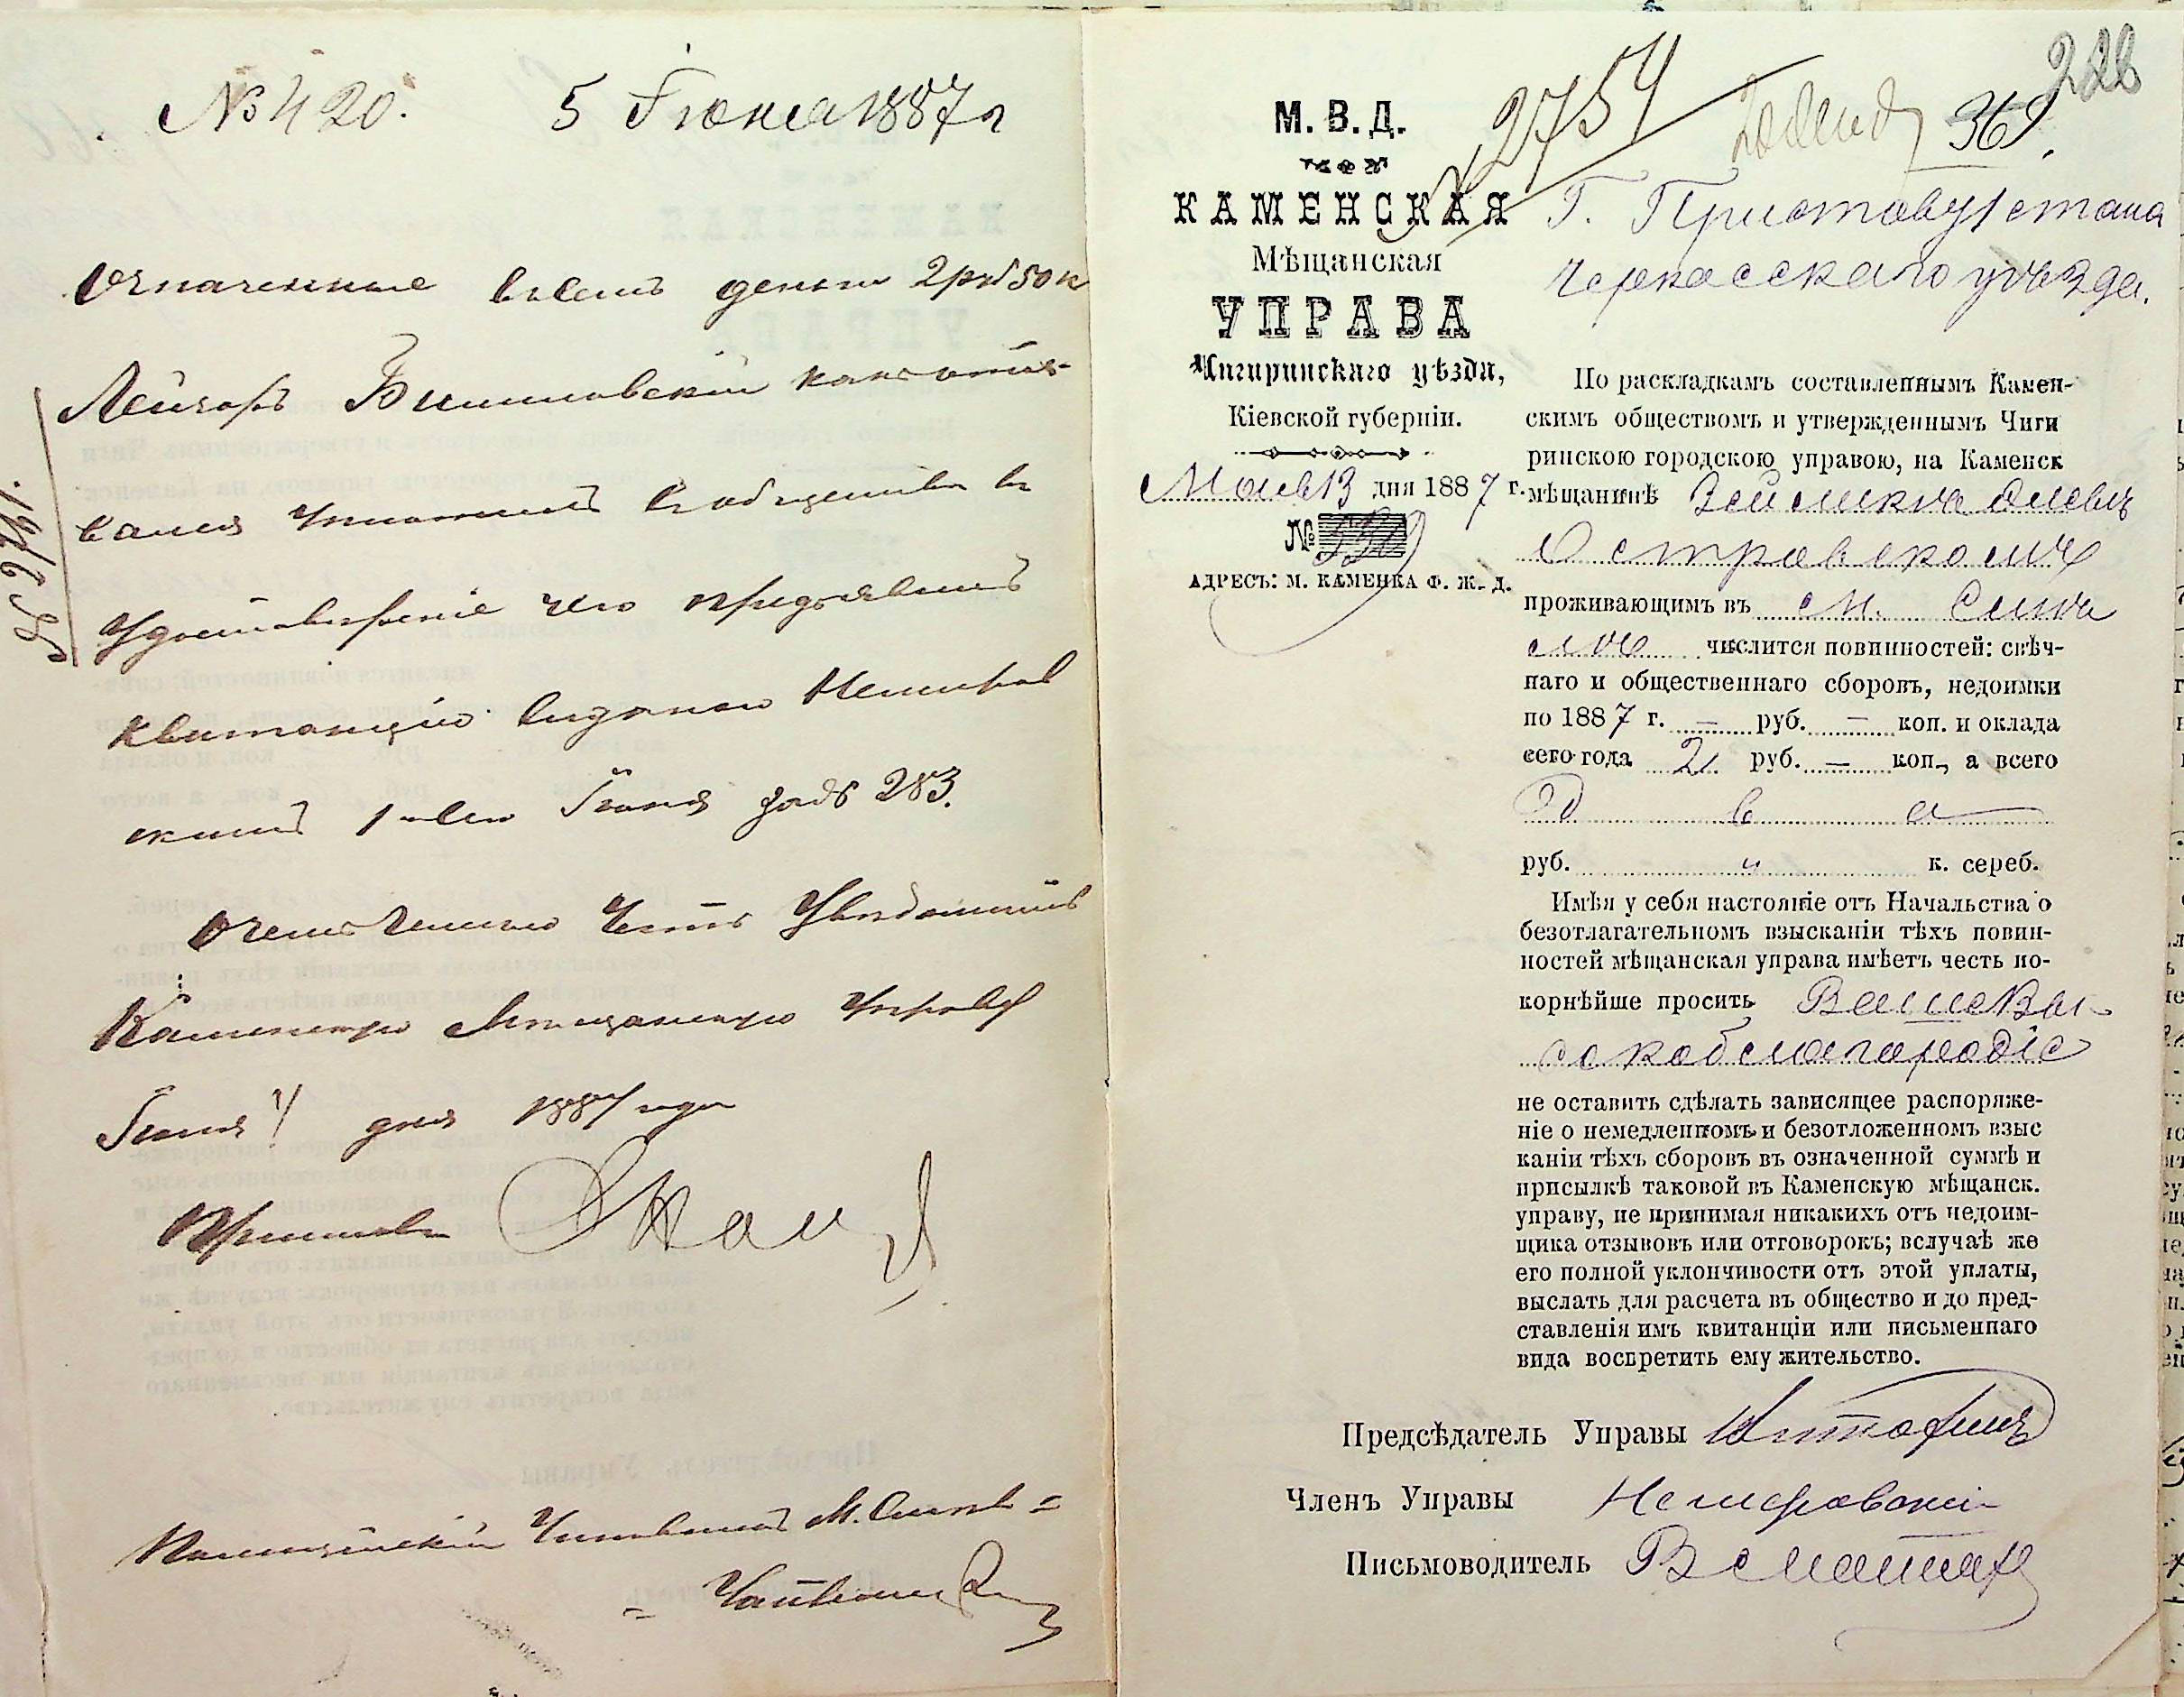 № 420. 5 Іюня 1887 г
Означенные всемъ деньги 2 руб 50 к
Лейзоръ
уплотилъ в общество въ
Удостоверение чего предъявилъ
квитанцію виданою Немиров
скимъ 1-го Іюня за № 283.
о чемъ имею честь Уведомить
Каменскую Мещанскую Управу
Іюня 4 дня 1887 года
Приставъ
Полицейскій М. Смелы
№ 2754
228
369.
М. В. Д.
КАМЕНСКАЯ
Мѣщанская
УПРАВА
Чигиринскаго уѣзда,
Кіевской губерніи.
13 дня 1887 г.
№
АДРЕСЪ: М. КАМЕНКА Ф. Ж. Д.
2754
Г. Приставу 1 стана
Черкасскаго уѣзда.
По раскладкамъ составленнымъ Камен-
скимъ обществомъ и утвержденнымъ Чиги
ринскою городскою управою, на Каменск
мѣщанинѣ
Островскомъ
проживающимъ въ м. Смѣ
лѣ числится повинностей: свѣч-
наго и общественнаго сборовъ, недоимки
по 1887 г. — руб. — коп. и оклада
сего года 2 руб. — коп., а всего
Два
руб. " к. сереб.
Имѣя у себя настояніе отъ Начальства о
безотлагательномъ взысканіи тѣхъ повин-
ностей мѣщанская управа имѣетъ честь по-
корнѣйше просить Ваше Вы-
сокоблагородіе
не оставить сдѣлать зависящее распоряже-
ніе о немедленномъ и безотложенномъ взыс
каніи тѣхъ сборовъ въ означенной суммѣ и
присылкѣ таковой въ Каменскую мѣщанск.
управу, не принимая никакихъ отъ недоим-
щика отзывовъ или отговорокъ; вслучаѣ же
его полной уклончивости отъ этой уплаты,
выслать для расчета въ общество и до пред-
ставленія имъ квитанціи или письменнаго
вида воспретить ему жительство.
Предсѣдатель Управы
Членъ Управы Немеровскій
Письмоводитель